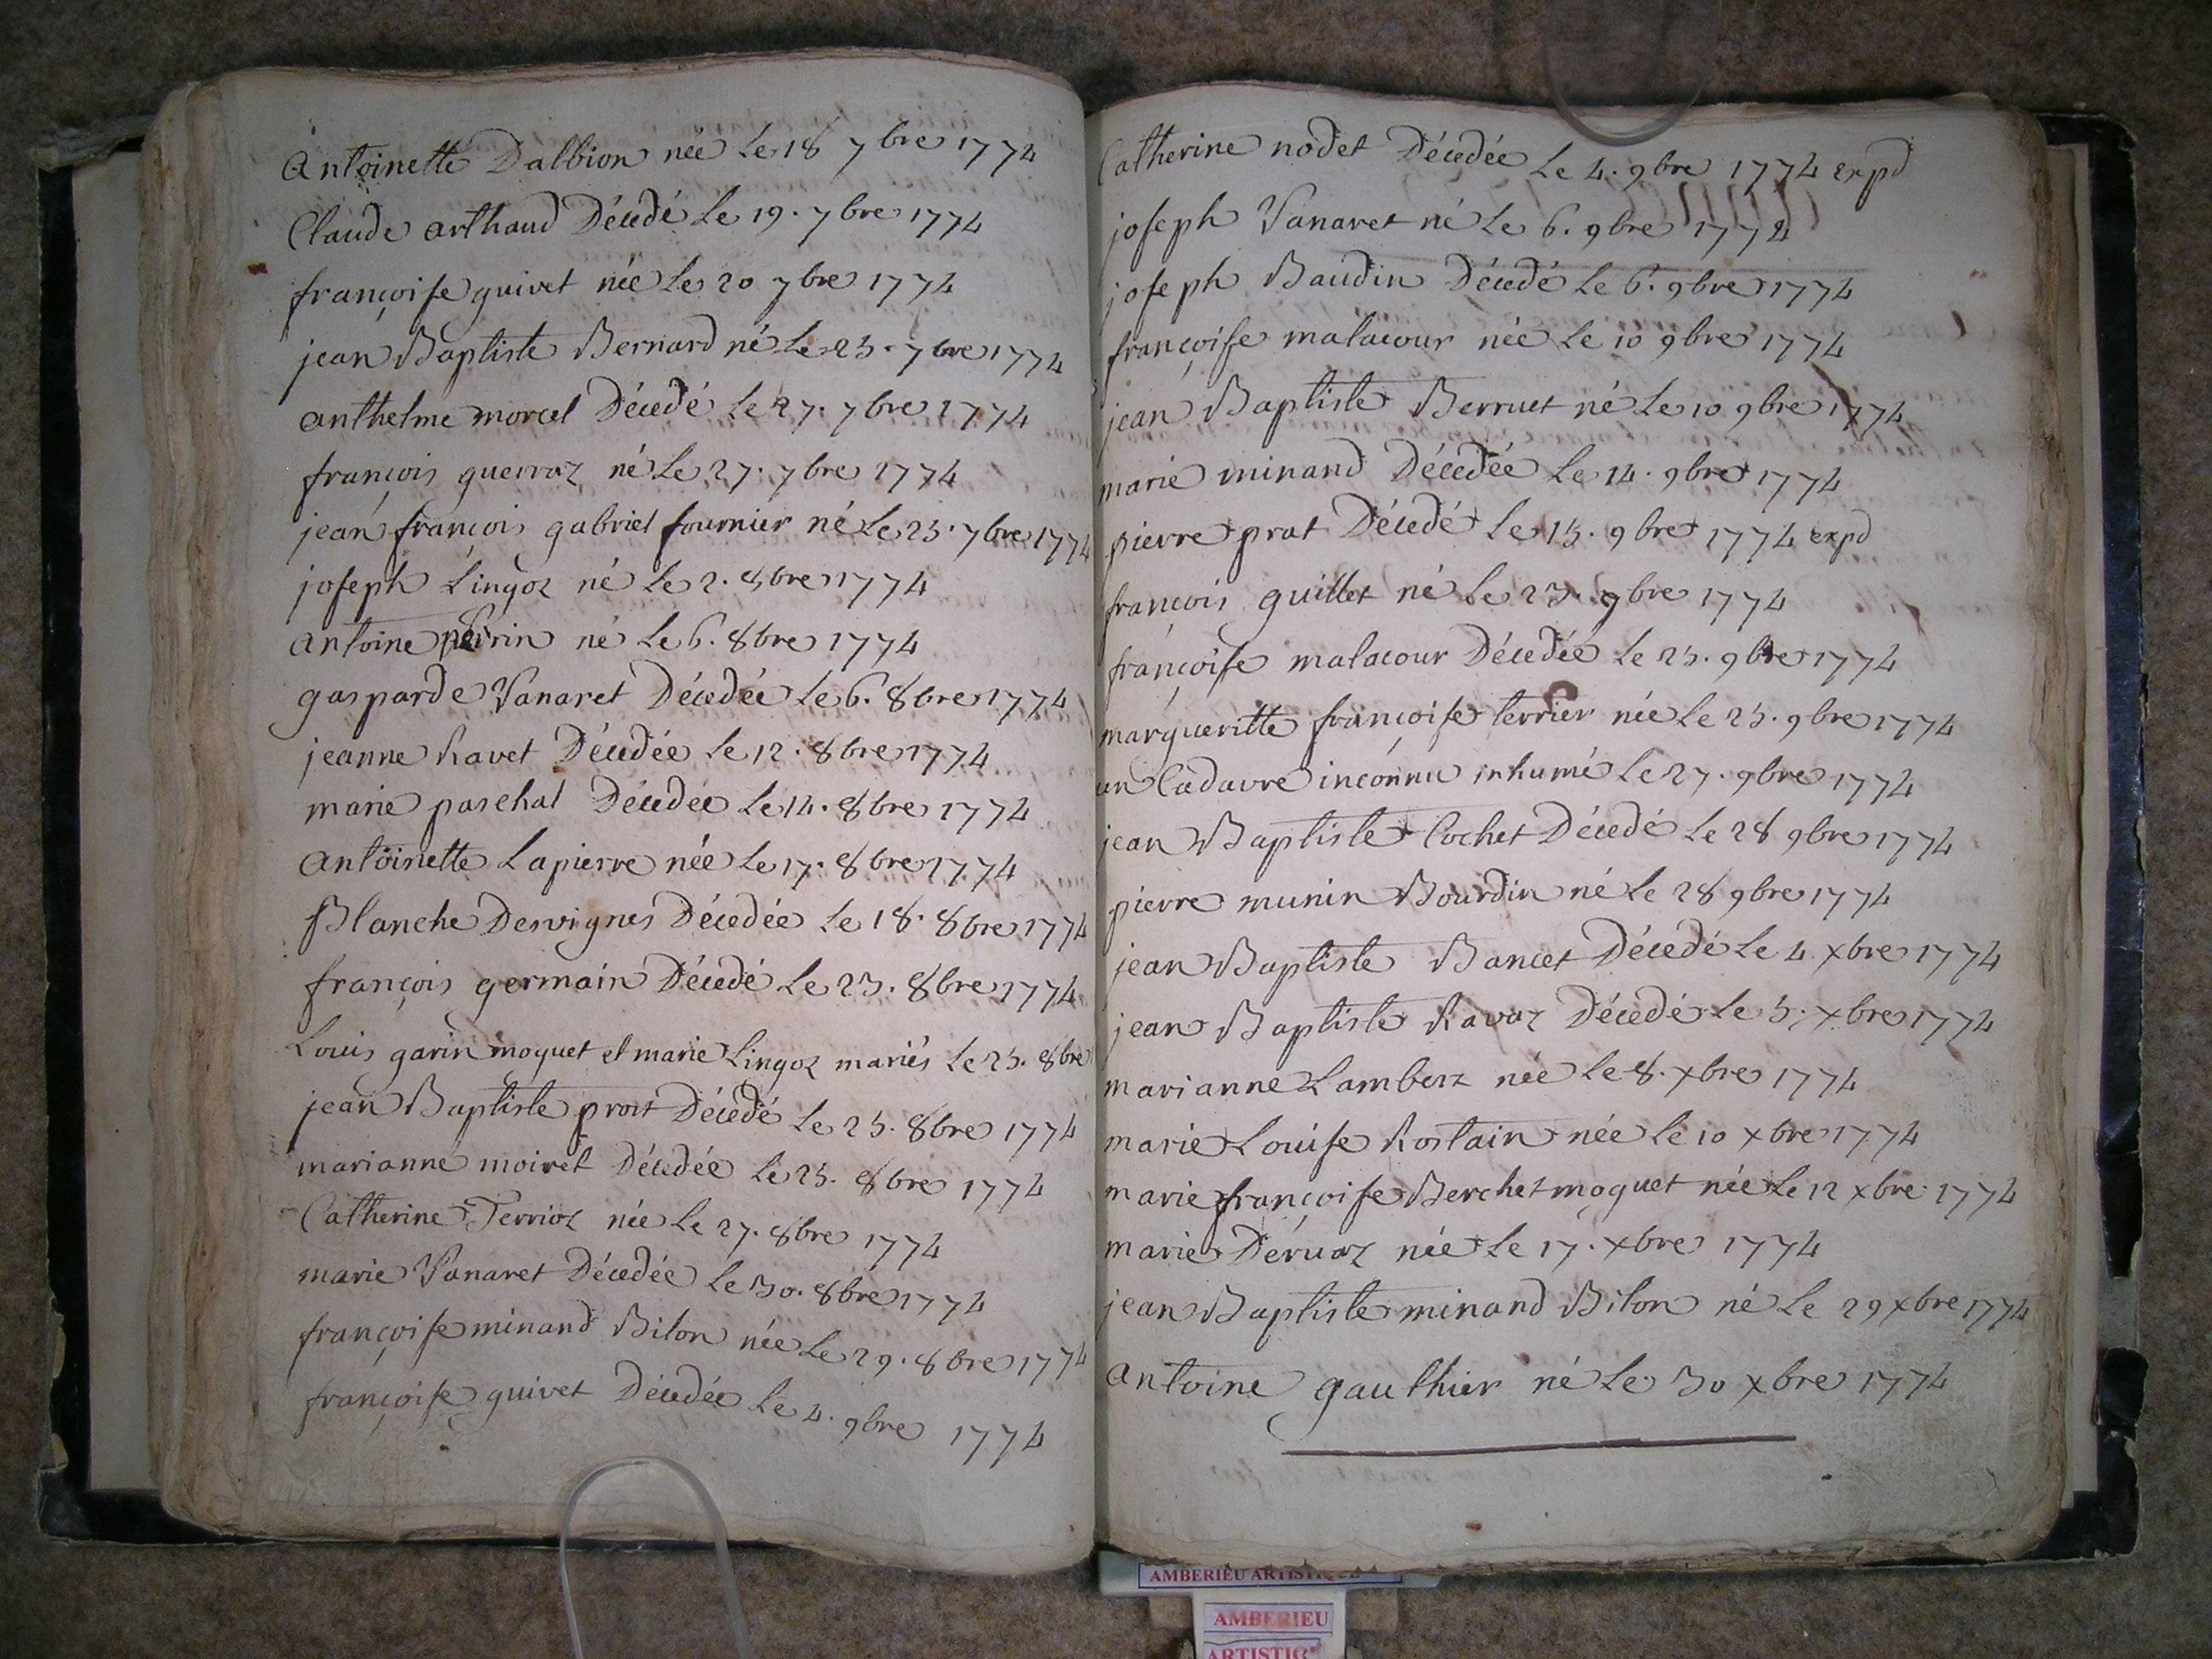 Antoinette Dalbion née Le 18 7bre 1774
Claude arthaud Décédé Le 19. 7bre 1774
françoise guivet née Le 20 7bre 1774
jean Baptiste Bernard né Le 25. 7bre 1774
anthelme morcel Décédé Le 27. 7bre 1774
françois guerraz né Le 27. 7bre 1774
jean françois gabriel fournier né Le 25. 7bre 1774
joseph Lingoz né Le 2. 8bre 1774
antoine né Le 6. 8bre 1774
gasparde Vanaret Décédée Le 6. 8bre 1774
jeanne Ravet Décédée Le 12. 8bre 1774
marie paschal Décédée Le 14. 8bre 1774
antoinette Lapierre née Le 17. 8bre 1774
Blanche Desvignes Décédée Le 18. 8bre 1774
françois germain Décédé Le 23. 8bre 1774
Louis garin moquet et marie Lingoz mariés Le 25. 8bre
jean Baptiste prost Décédé Le 25. 8bre 1774
marianne moiret Décédée Le 25. 8bre 1774
Catherine Terrioz née Le 27. 8bre 1774
marie Vanaret Décédée Le 30. 8bre 1774
françoise minand Bilon née Le 29. 8bre 1774
françoise guivet Décédée Le 4. 9bre 1774
Catherine nodet Décédée Le 4. 9bre 1774 expd
joseph Vanaret né Le 6. 9bre 1774
joseph Baudin Décédé Le 6. 9bre 1774
françoise malacour née Le 10 9bre 1774
jean Baptiste Berruet né Le 10 9bre 1774
marie minand Décédée Le 14. 9bre 1774
pierre prat Décédé Le 15. 9bre 1774 expd
françois guillet né Le 23. 9bre 1774
françoise malacour Décédée Le 25. 9bre 1774
margueritte françoise terrier née Le 25. 9bre 1774
un Cadavre inconnu inhumé Le 27. 9bre 1774
jean Baptiste Cochet Décédé Le 28 9bre 1774
pierre munin Bourdin né Le 28 9bre 1774
jean Baptiste Bancet Décédé Le 4 xbre 1774
jean Baptiste Ravaz Décédé Le 5. xbre 1774
marianne Lambert née Le 8. xbre 1774
marie Louise Rostain née Le 10 xbre 1774
marie françoise Berchet moquet née Le 12 xbre 1774
marie Déruaz née Le 17. xbre 1774
jean Baptiste minand Bilon né Le 29 xbre 1774
Antoine gauthier né Le 30 xbre 1774
AMBERIEU ARTISTIQUE
AMBERIEU
ARTISTIQ